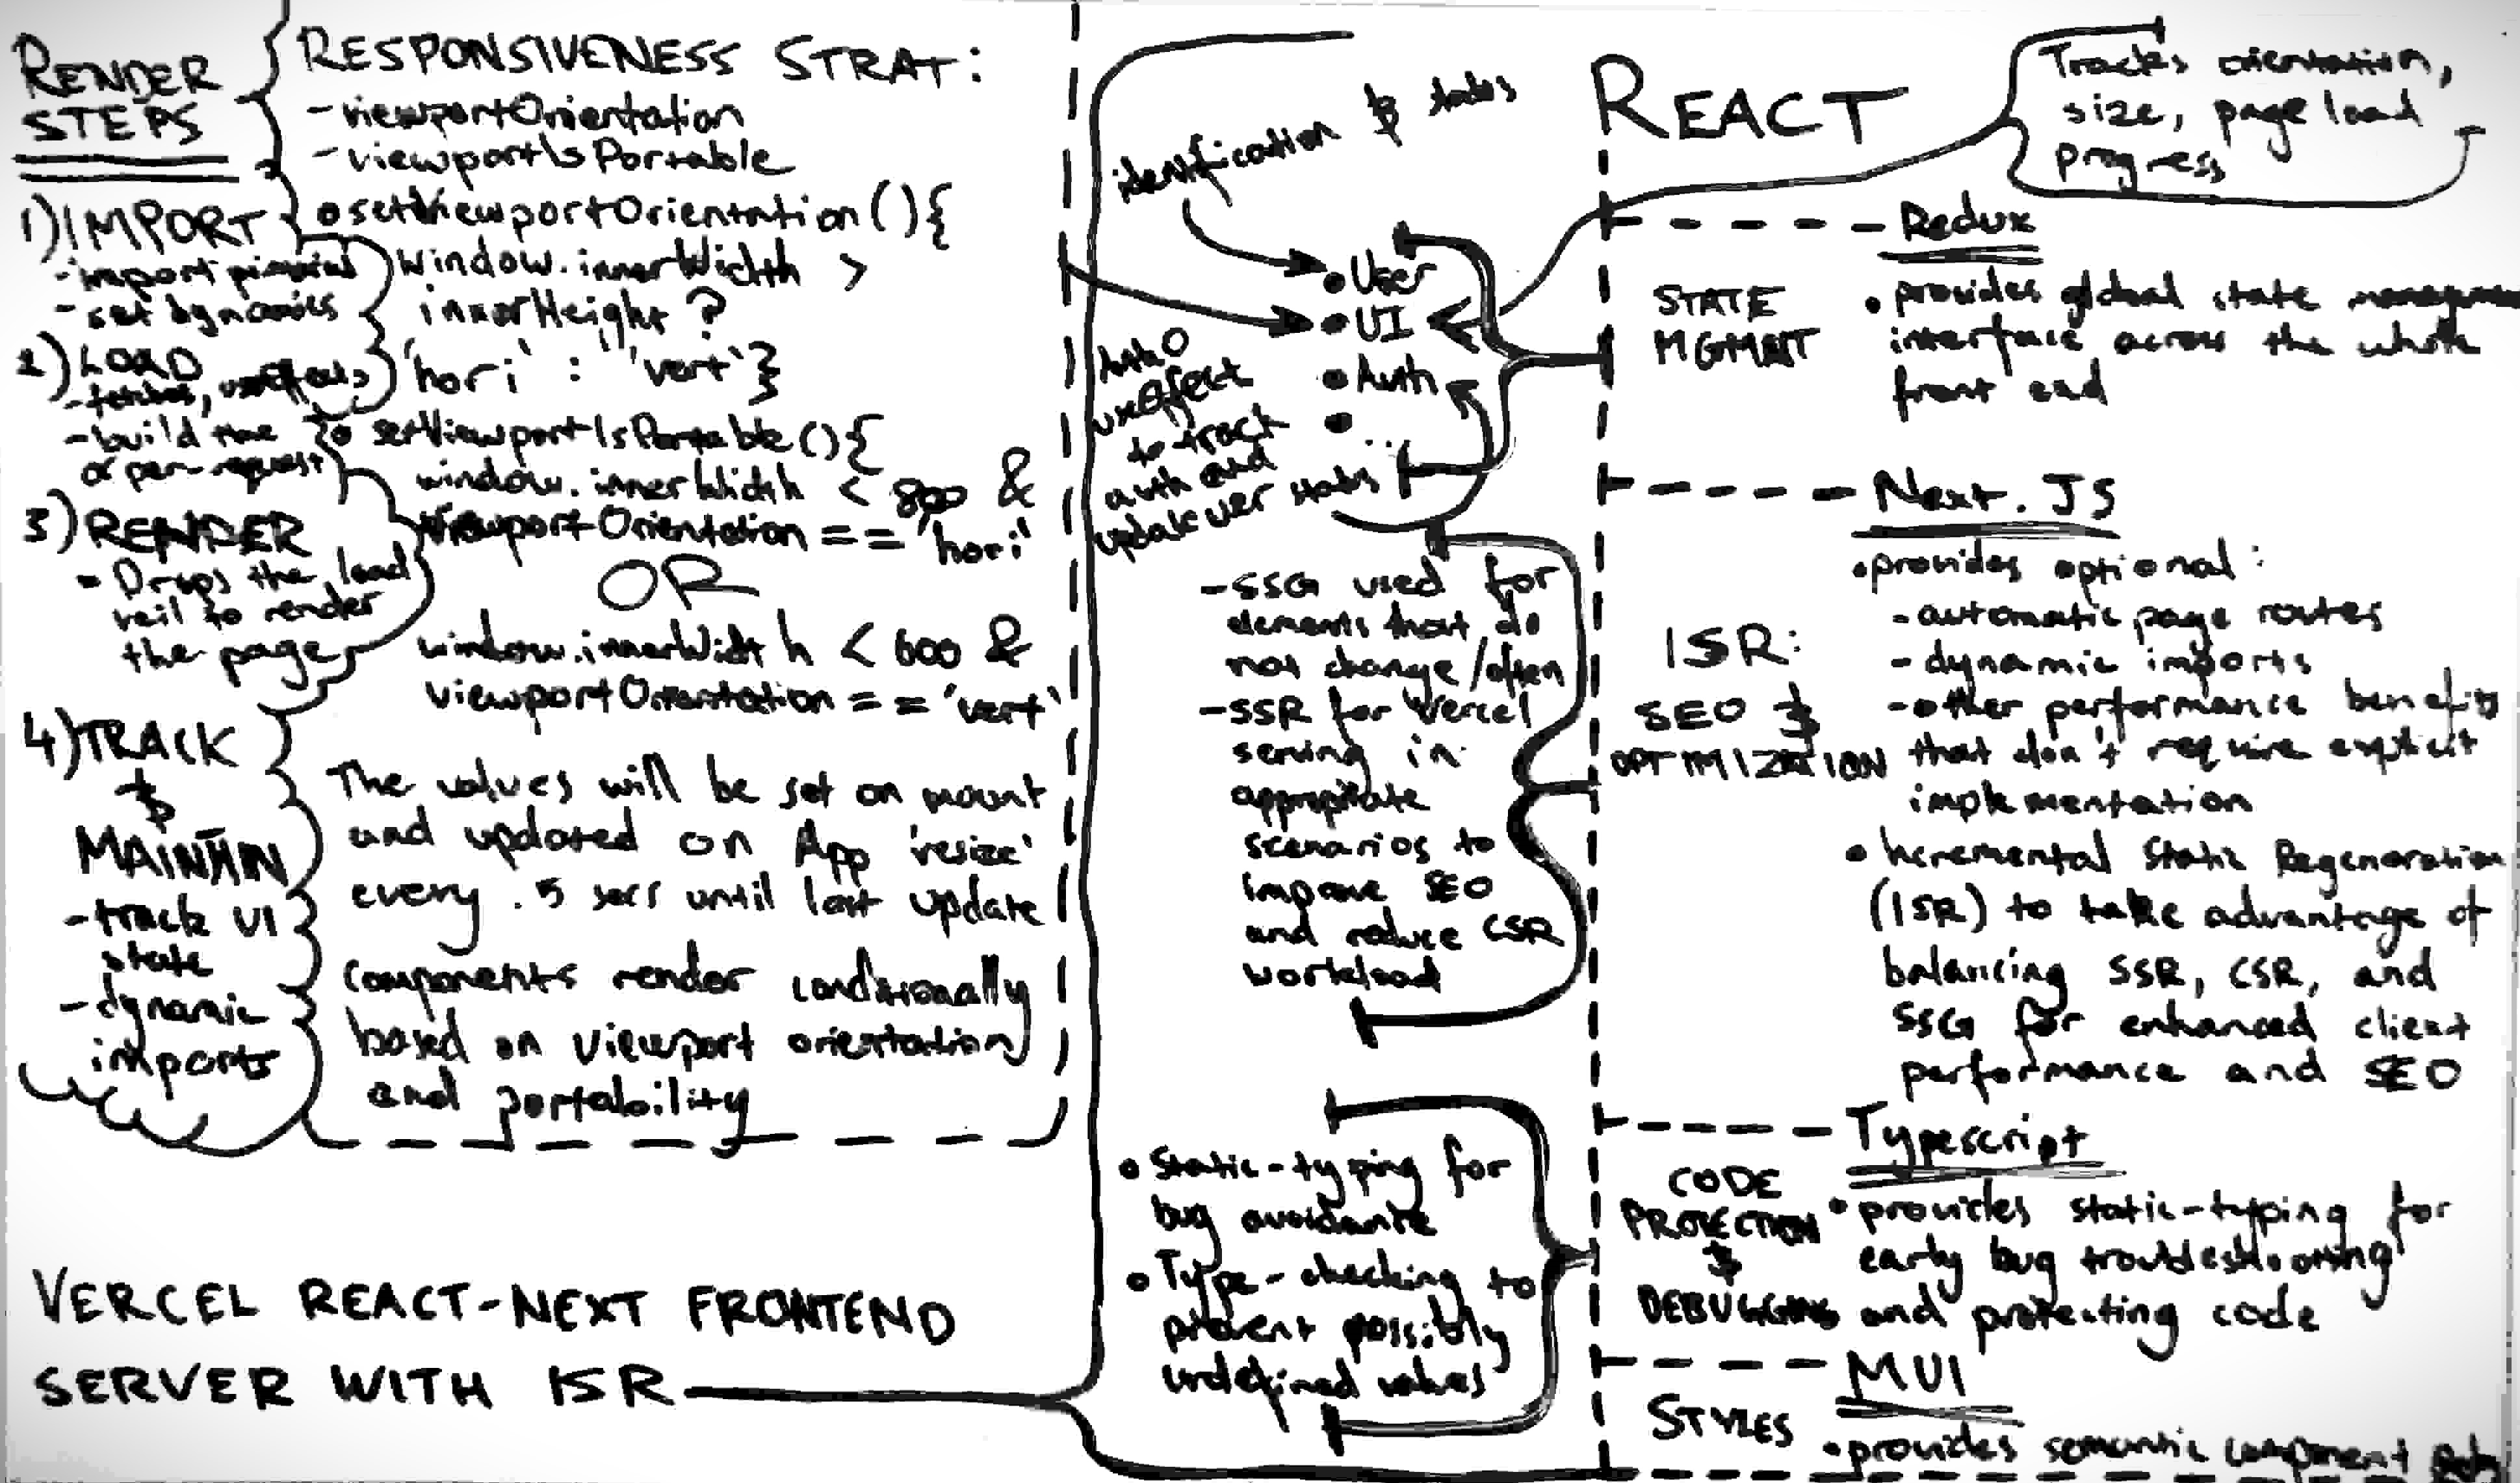 RENDER
STEPS
1) IMPORT
- import
- set dynamics
2) LOAD
- build time
or per-request
3) RENDER
- Drops the load
veil to render
the page
4) TRACK
&
MAINTAIN
- track UI
state
- dynamic
imports
RESPONSIVENESS STRAT:
- viewportOrientation
- viewportIsPortable
• setViewportOrientation(){
window.innerWidth >
innerHeight ?
'hori' : 'vert'}
• setViewportIsPortable(){
window.innerWidth < 800 &
viewportOrientation == 'hori'
OR
window.innerWidth < 600 &
viewportOrientation == 'vert'
The values will be set on mount
and updated on App 'resize'
every .5 secs until last update
Components render conditionally
based on viewport orientation
and portability
VERCEL REACT-NEXT FRONTEND
SERVER WITH ISR
identification & status
• User
• UI
• Auth
• ...
useEffect
to track
auth and
update user status
- SSG used for
elements that do
not change/often
- SSR for Vercel
serving in
appropriate
scenarios to
improve SEO
and reduce CSR
workload
• Static-typing for
bug avoidance
• Type-checking to
prevent possibly
undefined values
REACT
Tracks orientation,
size, page load
progress
Redux
STATE
MGMNT
• provides global state
interface across the whole
front end
Next.JS
ISR:
SEO &
OPTIMIZATION
• provides optional:
- automatic page routes
- dynamic imports
- other performance benefits
that don't require explicit
implementation
• Incremental Static Regeneration
(ISR) to take advantage of
balancing SSR, CSR, and
SSG for enhanced client
performance and SEO
Typescript
CODE
PROTECTION
&
DEBUGGING
• provides static-typing for
early bug troubleshooting
and protecting code
MUI
STYLES
• provides semantic component